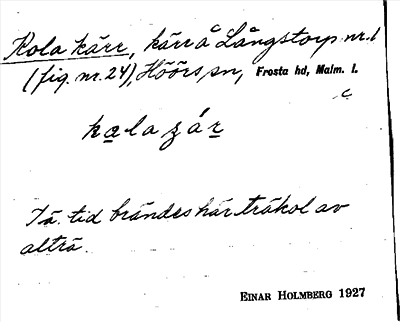 Kola kärr, kärr å Långstorp nr. 1
(fig. nr. 24), Höörs sn, Frosta hd, Malm. l.
c
kalazár
I ä. tid brändes här träkol av
alträ.
EINAR HOLMBERG 1927